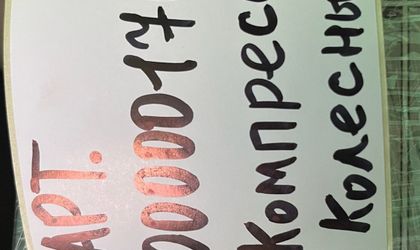 АРТ.
0000017
Компрес
Колесны